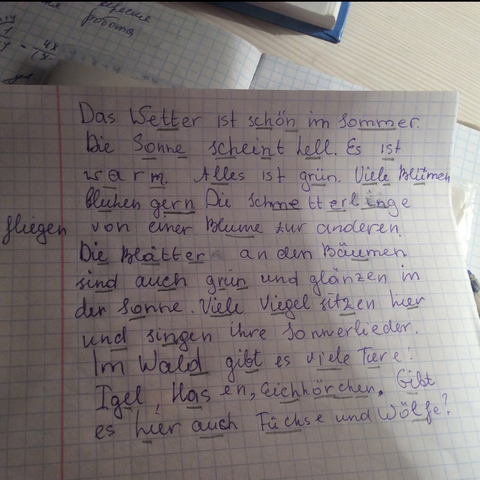 работа
Das Wetter ist schön im Sommer.
Die Sonne scheint hell. Es ist
warm. Alles ist grün. Viele Blumen
bluhen gern Die Schmetterlinge
fliegen von einer Blume zur anderen.
Die Blätter an den Bäumen
sind auch grün und glänzen in
der Sonne. Viele Viegel sitzen hier
und singen ihre Sommerlieder.
Im Wald gibt es viele Tiere!
Igel, Hasen, Eichhörchen. Gibt
es hier auch Füchse und Wölfe?